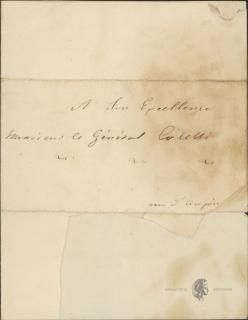 A Son Excellence
Monsieur le Général Coletti
rue d'Anjou